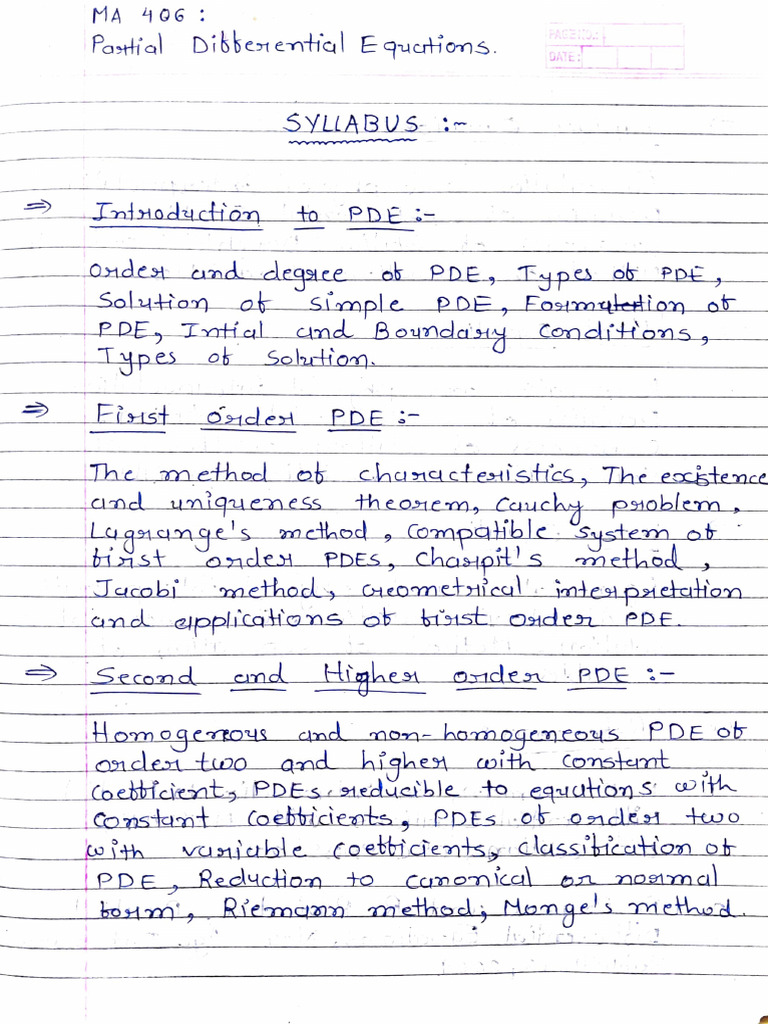 MA 406 :
Partial Differential Equations.
PAGE NO.:
DATE:
SYLLABUS :-
⇒ Introduction to PDE :-
Order and degree of PDE, Types of PDE,
Solution of simple PDE, Formation of
PDE, Intial and Boundary Conditions,
Types of Solution.
⇒ First order PDE :-
The method of characteristics, The existence
and uniqueness theorem, Cauchy problem,
Lagrange's method, Compatible system of
first order PDEs, Charpit's method,
Jacobi method, Geometrical interpretation
and applications of first order PDE.
⇒ Second and Higher order PDE :-
Homogeneous and non-homogeneous PDE of
order two and higher with constant
coefficient, PDEs reducible to equations with
constant coefficients, PDEs of order two
with variable coefficients, classification of
PDE, Reduction to canonical or normal
form, Riemann method; Monge's method.